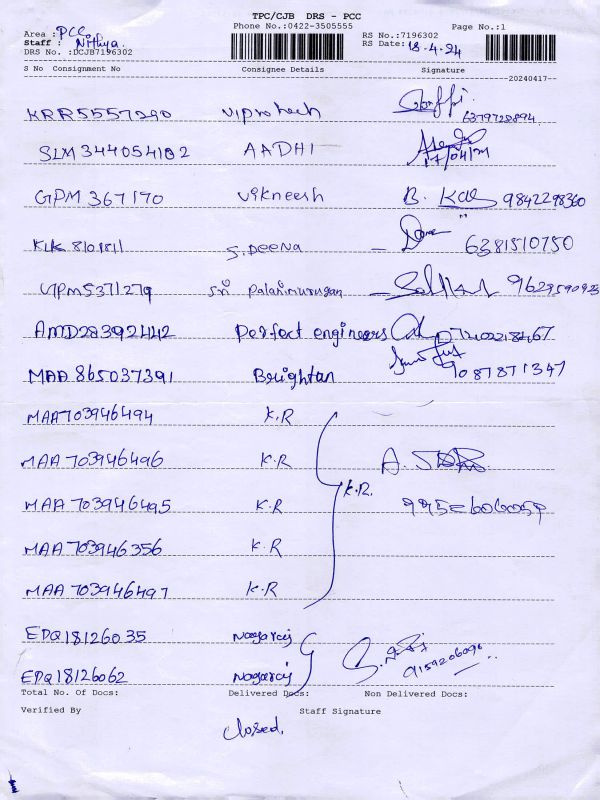 TPC/CJB DRS - PCC
Area : PCC. Phone No.:0422-3505555 RS No.:7196302 Page No.:1
Staff : Nithya. RS Date: 18.4.24
DRS No. :DCJB7196302
S No Consignment No Consignee Details Signature
20240417--
KRR5557290 viprotech 6379728894
SLM 344054182 AADHI 17/04/24
GPM 367170 Vikneesh B. 9842298360
KLK 8101811 S.Deena 6381510750
5371279 Sri Palanimurugan 9629590923
AMD28392442 Perfect engineers
MAA 865037391 Brightan 9087871347
MAA703946494 K.R
MAA 703946496 K.R A.
MAA 703946495 K.R K.R.
MAA 703946356 K.R
MAA 703946497 K.R
EDQ18126035 Nagaraj
EDQ18126062 Nagaraj 9159206096
Total No. Of Docs: Delivered Docs: Non Delivered Docs:
Verified By Staff Signature
Closed.